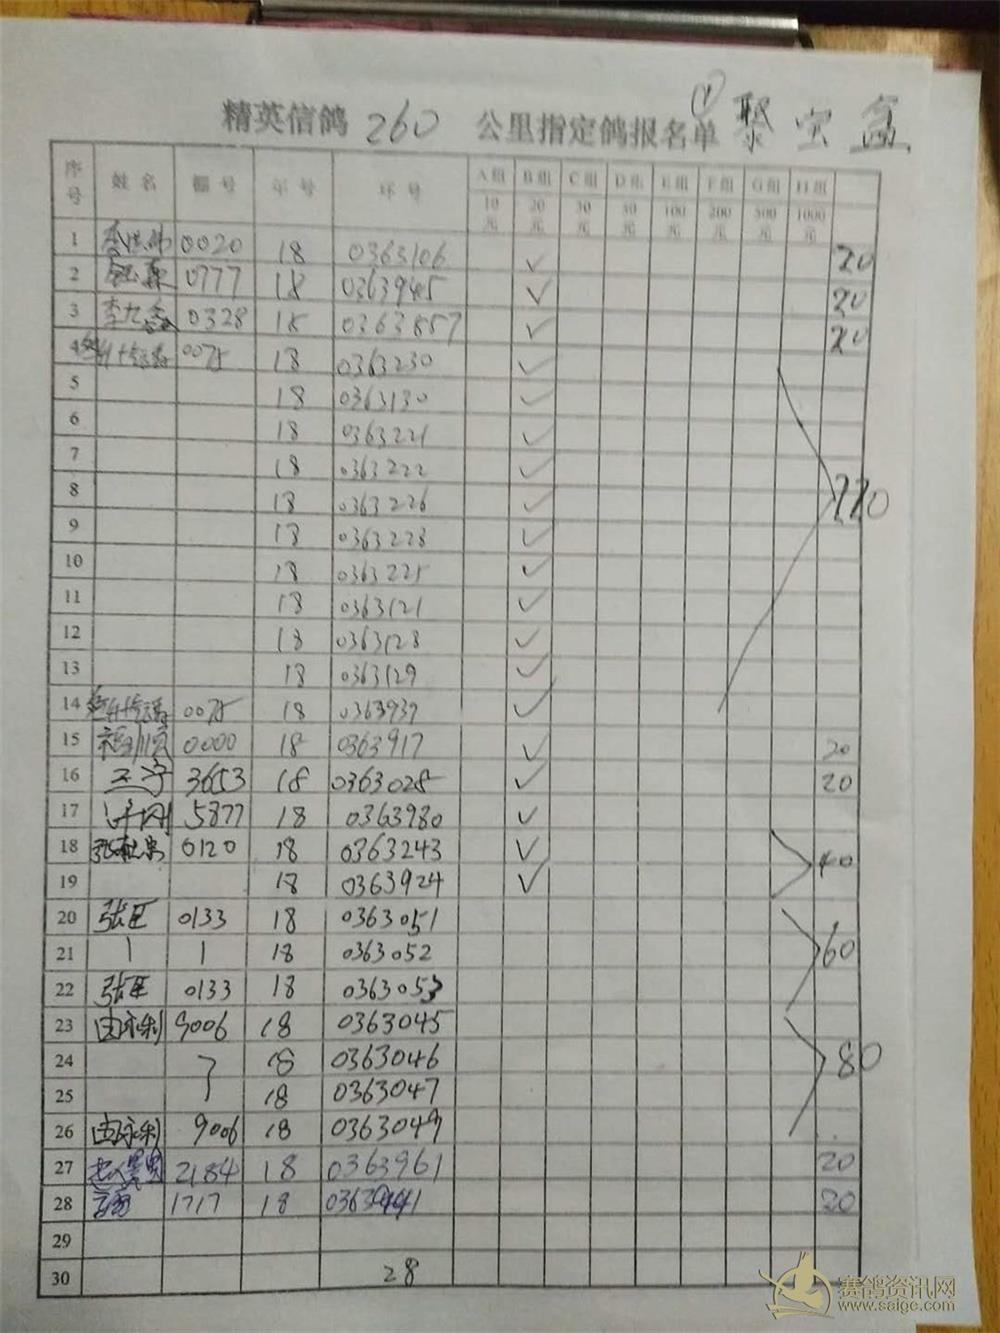 精英信鸽 260 公里指定鸽报名单 (1) 聚宝盆
序号 姓名 棚号 年号 环号 A组 B组 C组 D组 E组 F组 G组 H组
10元 20元 30元 50元 100元 200元 500元 1000元
1 0020 18 0363106 ✓ 20
2 0777 18 0363945 ✓ 20
3 0328 18 0363857 ✓ 20
4 0075 18 0363230 ✓
5 18 0363130 ✓
6 18 0363221 ✓
7 18 0363222 ✓
8 18 0363226 ✓ 220
9 18 0363228 ✓
10 18 0363225 ✓
11 18 0363121 ✓
12 18 0363128 ✓
13 18 0363129 ✓
14 0075 18 0363939 ✓
15 0000 18 0363917 ✓ 20
16 王宇 3653 18 0363028 ✓ 20
17 5877 18 0363980 ✓
18 0120 18 0363243 ✓ 40
19 18 0363924 ✓
20 张臣 0133 18 0363051
21 18 0363052 60
22 张臣 0133 18 0363053
23 由永利 9006 18 0363045
24 18 0363046 80
25 18 0363047
26 由永利 9006 18 0363049
27 2184 18 0363961 20
28 1717 18 20
29
30 28
赛鸽资讯网
www.saige.com